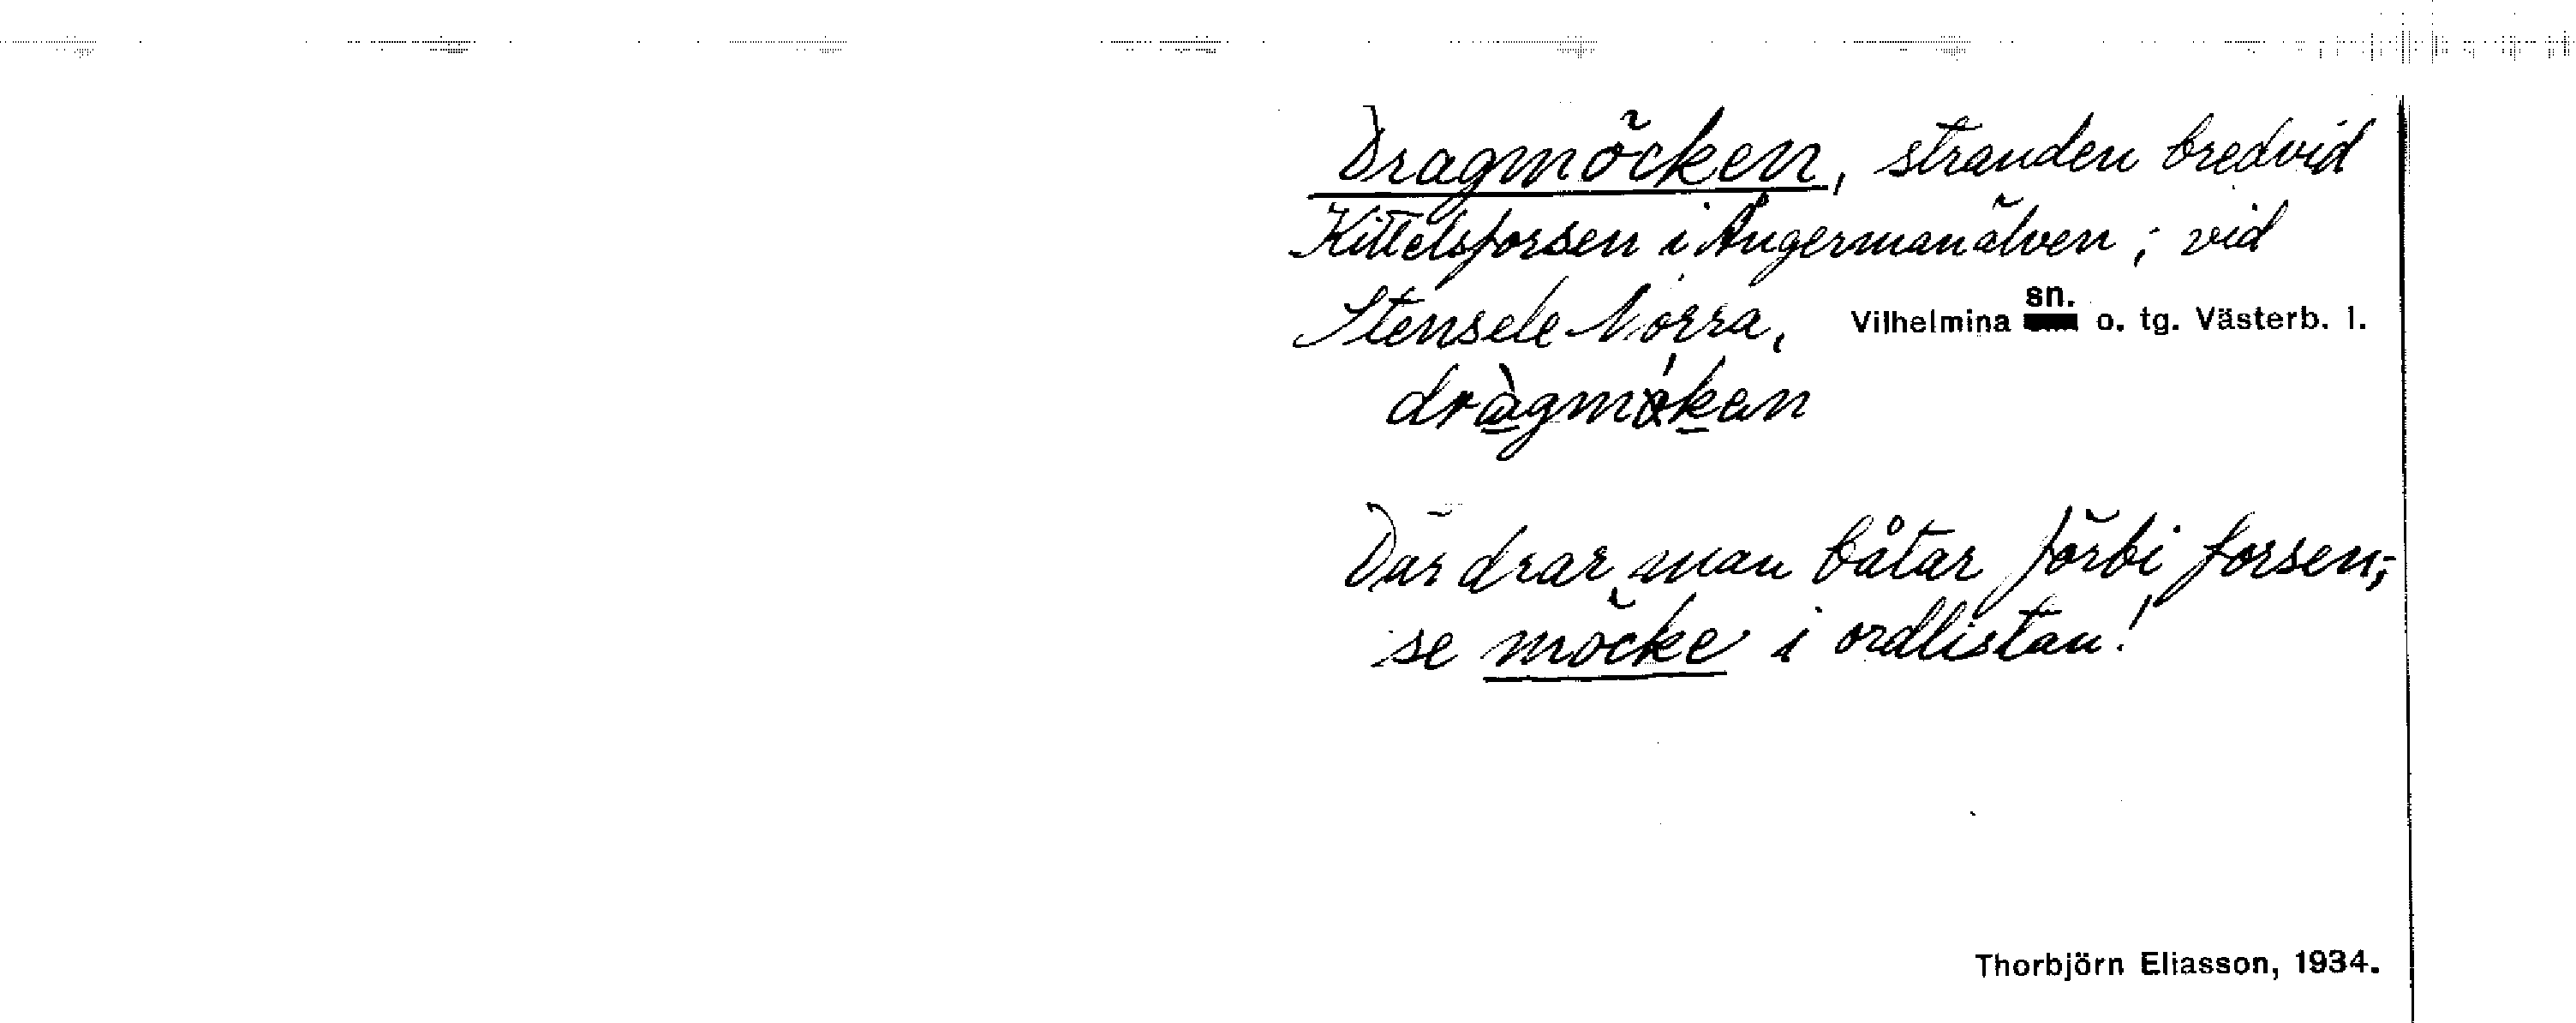 Dragmöcken, stranden bredvid
Kittelsforsen i Ångermanälven; vid
Stensele Norra, Vilhelmina sn. o. tg. Västerb. l.
Där drar man båtar förbi forsen;
se möcke i ordlistan!
Thorbjörn Eliasson, 1934.